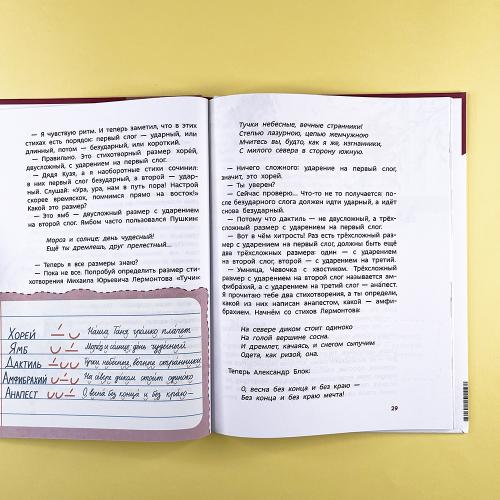 — Я чувствую ритм. И теперь заметил, что в этих
стихах есть порядок: первый слог — ударный, или
длинный, потом — безударный, или короткий.
— Правильно. Это стихотворный размер хорей,
двусложный, с ударением на первый слог.
— Дядя Кузя, а я наоборотные стихи сочинил:
в них первый слог безударный, а второй — удар-
ный. Слушай: «Ура, ура, нам в путь пора! Настрой
скорее времяскок, помчимся прямо на восток!»
Какой это размер?
— Это ямб — двусложный размер с ударением
на второй слог. Ямбом часто пользовался Пушкин:
Мороз и солнце; день чудесный!
Ещё ты дремлешь, друг прелестный...
— Теперь я все размеры знаю?
— Пока не все. Попробуй определить размер сти-
хотворения Михаила Юрьевича Лермонтова «Тучи»:
Хорей Наша Таня громко плачет
Ямб Мороз и солнце; день чудесный
Дактиль Тучки небесные, вечные странники
Амфибрахий На севере диком стоит одиноко
Анапест О, весна без конца и без краю —
Тучки небесные, вечные странники!
Степью лазурною, цепью жемчужною
Мчитесь вы, будто, как я же, изгнанники,
С милого севера в сторону южную.
— Ничего сложного: ударение на первый слог,
значит, это хорей.
— Ты уверен?
— Сейчас проверю... Что-то не то получается: по-
сле безударного слога должен идти ударный, а идёт
снова безударный.
— Потому что дактиль — не двусложный, а трёх-
сложный размер с ударением на первый слог.
— Вот в чём хитрость! Раз есть трёхсложный раз-
мер с ударением на первый слог, должны быть ещё
два трёхсложных размера: один — с ударением
на второй слог, второй — с ударением на третий.
— Умница, Чевочка с хвостиком. Трёхсложный
размер с ударением на второй слог называется ам-
фибрахий, а с ударением на третий слог — анапест.
Я прочитаю тебе два стихотворения, а ты определи,
какой из них написан анапестом, какой — амфи-
брахием. Начнём со стихов Лермонтова:
На севере диком стоит одиноко
На голой вершине сосна.
И дремлет, качаясь, и снегом сыпучим
Одета, как ризой, она.
Теперь Александр Блок:
О, весна без конца и без краю —
Без конца и без краю мечта!
29